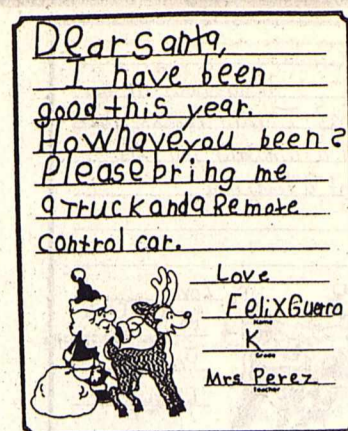 Dear Santa,
I have been
good this year.
How have you been?
Please bring me
a Truck and a Remote
control car.
Love
Felix Guerra
Name
K
Grade
Mrs. Perez
Teacher